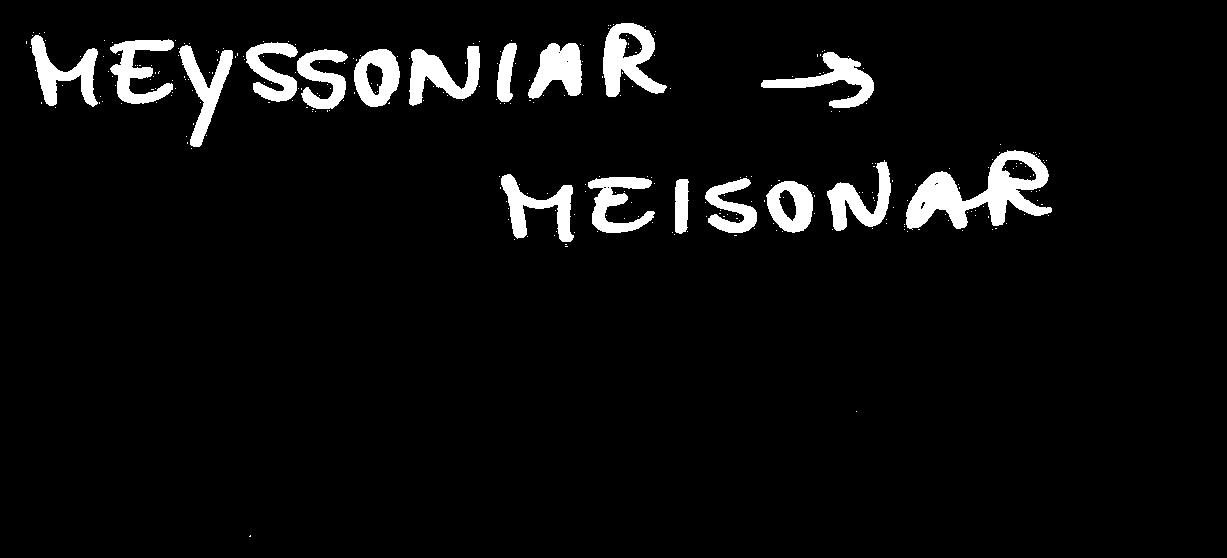 MEYSSONIAR →
MEISONAR